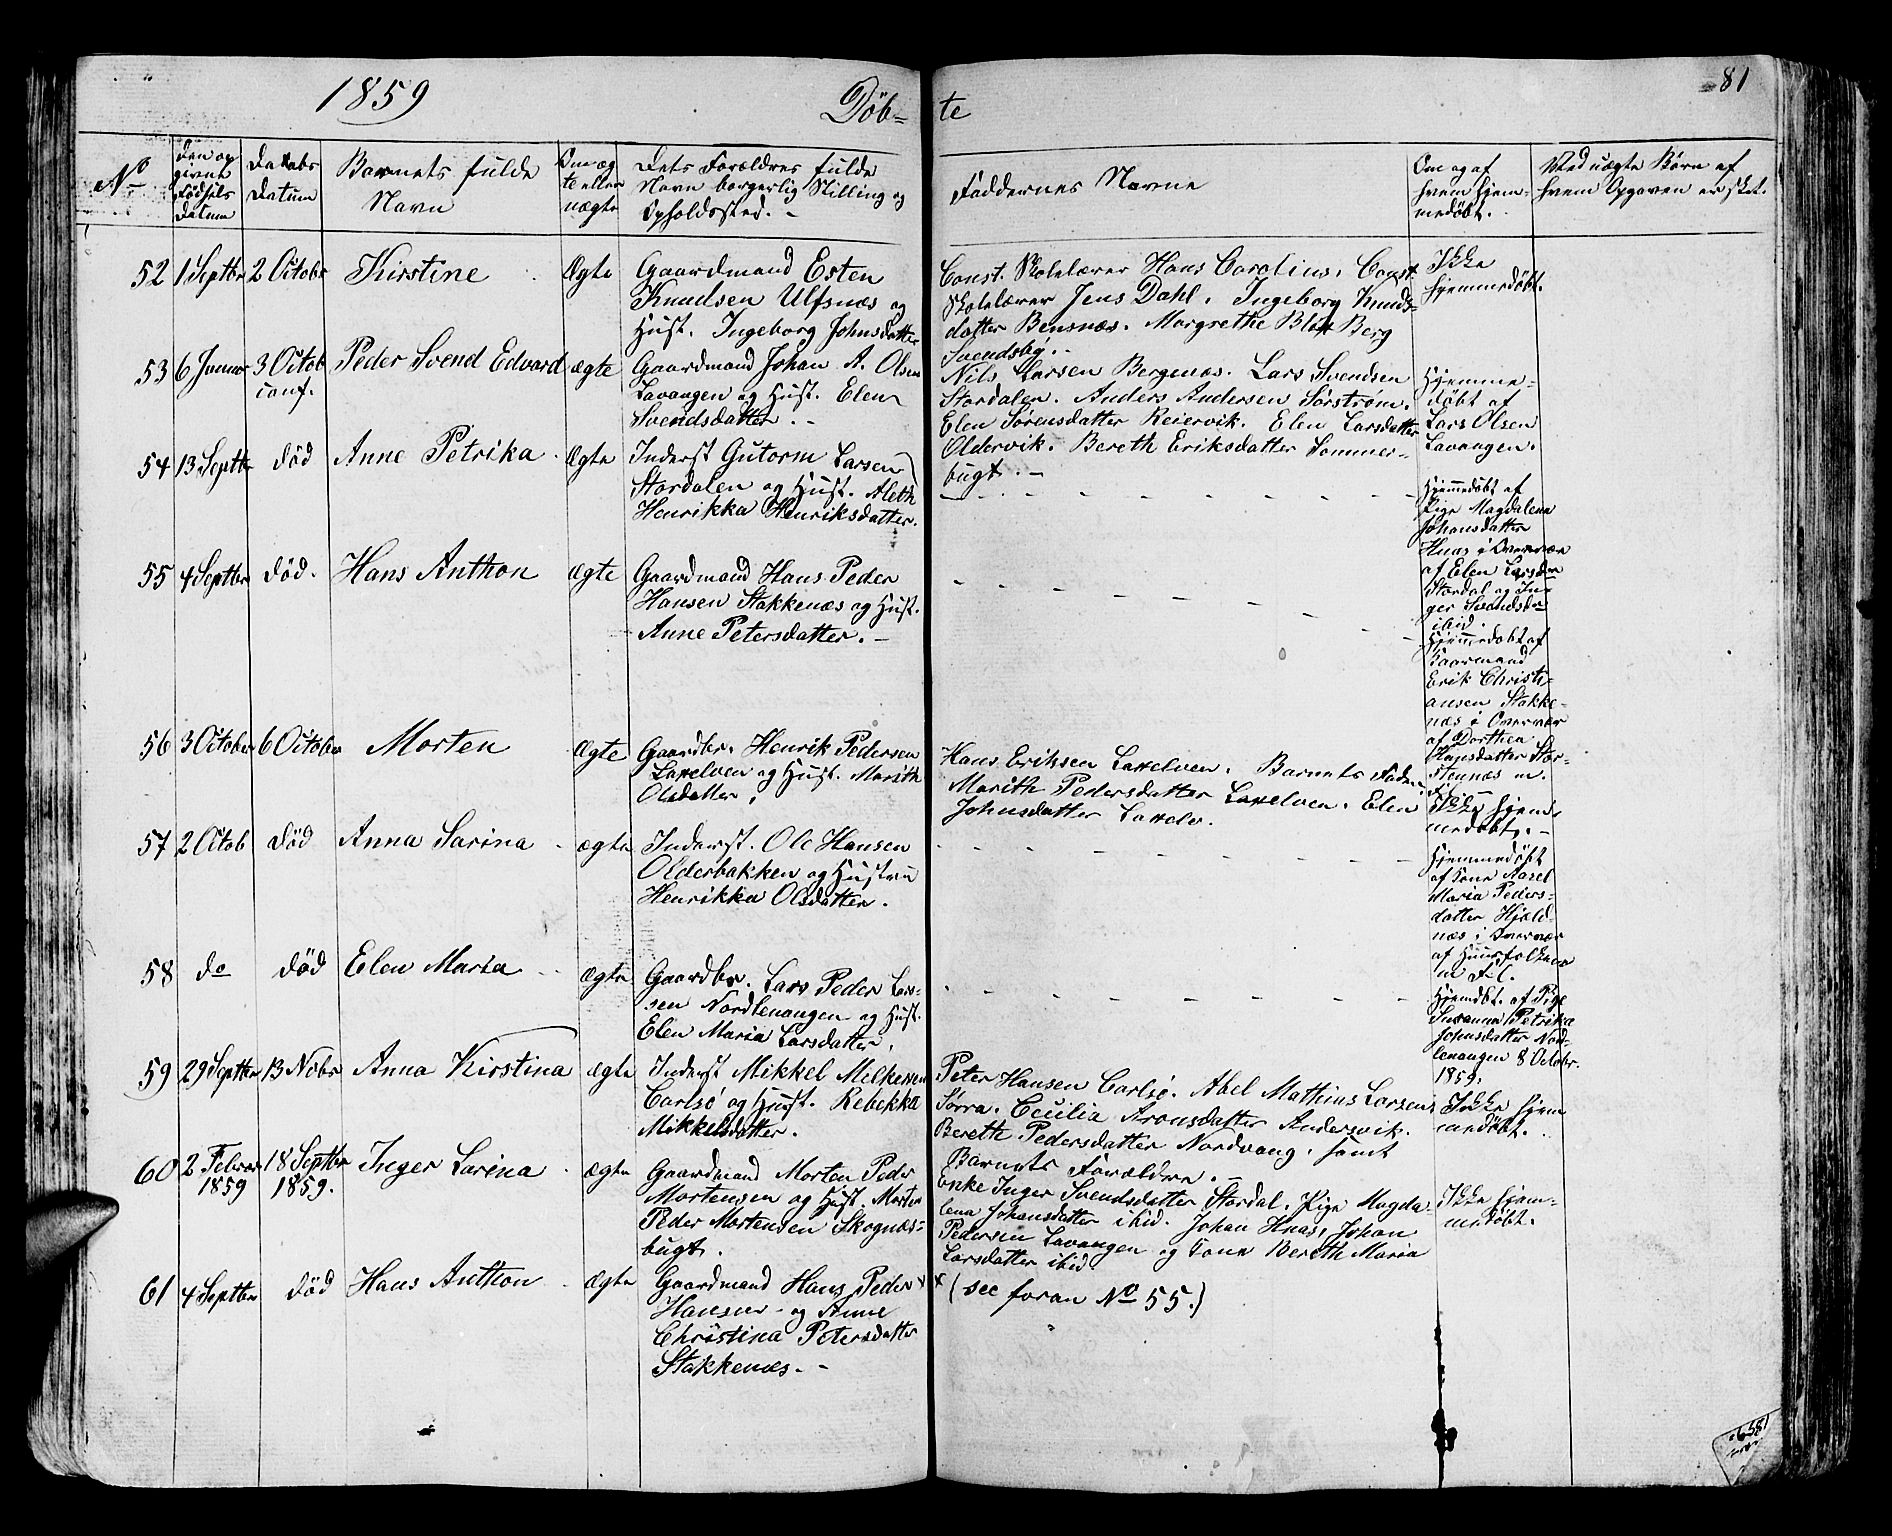 1859
Döb-
te
81
No
Den op
givne
Födsels
Datum
Daabs
Datum
Barnets fulde
Navn
Om æg
te eller
uægte
Dets Forældres fulde
Navn borgerlig Stilling og
Opholdssted. -
Faddernes Navne
Om og af
hvem hjem-
medöbt.
Ved uægte Börn af
hvem Opgaven er sket.
52
1 Septbr
2 Octobr
Kirstine
Ægte
Gaardmand Esten
Knudsen Ulfsnæs og
Hust. Ingeborg Johnsdatter
Const. Skolelærer Hans Carolius, Const.
Skolelærer Jens Dahl. Ingeborg Knuds-
datter Bensnæs. Margrethe Blix Berg
Svendsby.
Ikke
hjemmedöbt.
53
6 Januar
3 Octob
conf.
Peder Svend Edvard
ægte
Gaardmand Johan A. Olsen
Lavangen og Hust. Elen
Svendsdatter. -
Nils Larsen Bergenæs. Lars Svendsen
Stordalen. Anders Andersen Sörström.
Elen Sörensdatter Reiervik. Elen Larsdatter
Oldervik. Bereth Eriksdatter Sommer-
bugt. -
Hjemme-
döbt af
Lars Olsen
Lavangen.
54
13 Septbr
död
Anne Petrika
Ægte
Inderst Gutorm Larsen
Stordalen og Hust. Aleth
Henrikka Henriksdatter.
Hjemmedöbt af
Pige Magdalena
Johansdatter
Hnas i Overvær
af Elen Larsdtr
Stordal og In-
ger Svendsdtr
ibid.
55
4 Septbr
död.
Hans Anthon
ægte
Gaardmand Hans Peder
Hansen Stakkenæs og Hust.
Anne Petersdatter. -
Hjemmedöbt af
Gaarmand
Erik Christi-
ansen Stakke-
næs i Overvær
af Dorthea
Hansdatter Stor-
stennæs m.
fl. -
56
3 October
6 October
Morten
Ægte
Gaardbr. Henrik Pedersen
Laxelven og Hust. Marith
Olsdatter.
Hans Eriksen Laxelven. Barnets Fader.
Marith Pedersdatter Laxelven. Elen
Johnsdatter Laxelv.
Ikke hjem-
medöbt. -
57
2 Octob
död
Anna Sarina
ægte
Inderst. Ole Hansen
Olderbakken og Hustru
Henrikka Olsdatter.
Hjemmedöbt
af Kone Axsel
Maria Peders-
datter Hjeld-
næs i Overvær
af Huusfolkene
m. fl.
58
do
död
Elen Maria
ægte
Gaardbr. Lars Peder Lar-
sen Nordlenangen og Hust.
Elen Maria Larsdatter.
Hjemdbt. af Pige
Susanna Petrika
Johnsdatter Nord-
lenangen 8 Octobr.
1859.
59
29 Septbr
13 Nobr
Anna Kirstina
ægte
Inderst Mikkel Mikkelsen
Carlsö og Hust. Rebekka
Mikkelsdatter.
Peter Hansen Carlsö. Abel Mathius Larsen
Sörra. Cecilia Aronsdatter Andersvik.
Bereth Pedersdatter Nordvang, samt
Barnets Forældre. -
Ikke hjem
medöbt.
60
2 Februar
1859
18 Septbr
1859.
Inger Larina
ægte
Gaardmand Morten Peder
Mortensen og Hust. Morten
Peder Mortensen Skognæs-
bugt.
Enke Inger Svendsdatter Stordal. Pige Magda-
lena Johansdatter ibid. Johan Hnas, Johan
Pedersen Lavangen og Kone Bereth Maria
Larsdatter ibid.
Ikke hjem-
medöbt.
61
4 Septbr
död
Hans Anthon
Ægte
Gaardmand Hans Peder x
Hansen - og Anne
Christina Petersdatter
Stakkenæs. -
x (see foran No 55.)